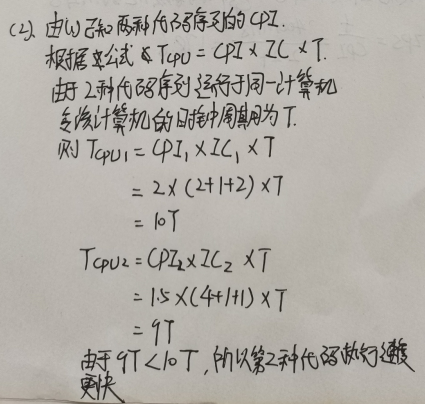 (2). 由(1)已知两种代码序列的CPI.
根据公式 TCPU = CPI × IC × T.
由于2种代码序列运行于同一计算机
该计算机的时钟周期为T.
则 TCPU1 = CPI1 × IC1 × T
= 2×(2+1+2)×T
= 10T
TCPU2 = CPI2 × IC2 × T
= 1.5×(4+1+1)×T
= 9T
由于9T<10T, 所以第2种代码执行速度
更快